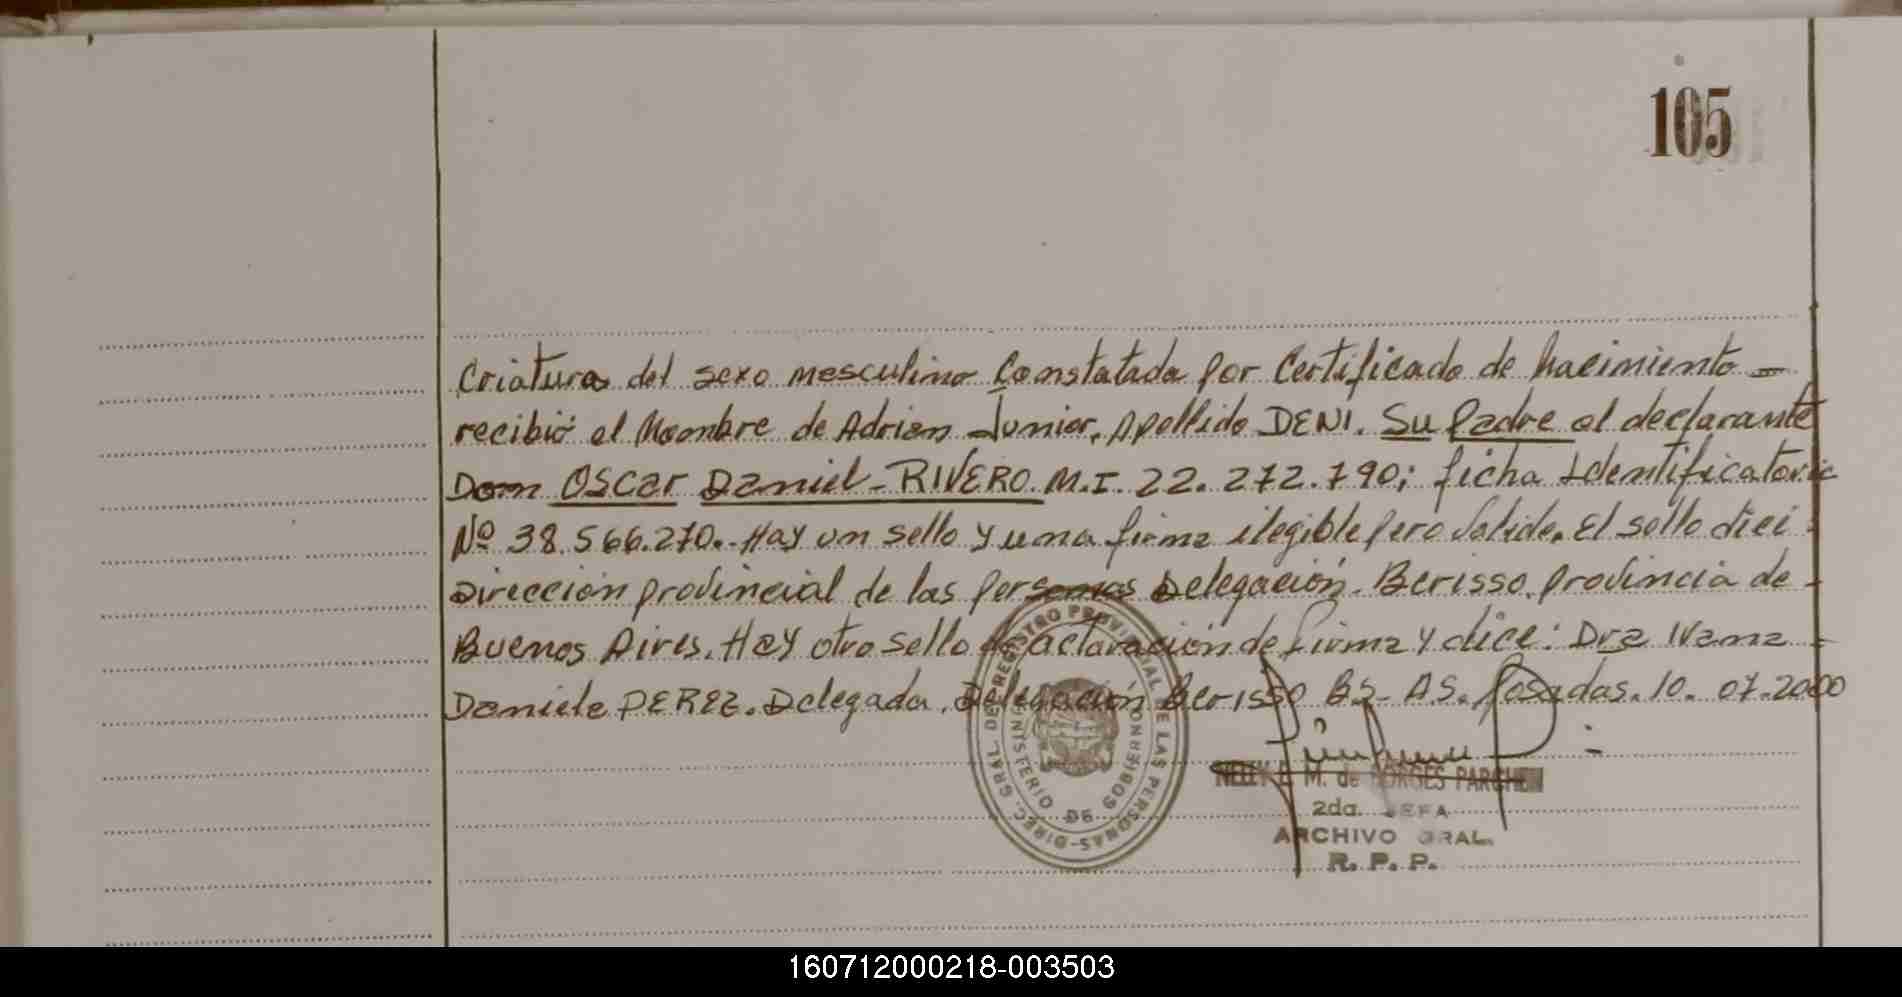 105
Criatura del sexo masculino Constatada por Certificado de Nacimiento
recibió el Nombre de Adrian Junior, Apellido DENI. Su Padre el declarante
Don OSCAR Daniel - RIVERO. M.I. 22.272.790; ficha Identificatoria
Nº 38.566.270.- Hay un sello y una firma ilegible pero Valida. El sello dici:
Dirección provincial de las personas Delegación. Berisso, provincia de -
Buenos Aires. Hay otro sello de aclaración de firma y dice: Dra Ivana
Daniele PEREZ. Delegada. Delegación Berisso BS- AS. Posadas. 10. 07. 2000
DIREC. GRAL. DE REGISTRO PROVINCIAL DE LAS PERSONAS
MINISTERIO DE GOBIERNO
NELLY E. M. de BORGES PARCHEN
2da. JEFA
ARCHIVO GRAL.
R. P. P.
160712000218-003503